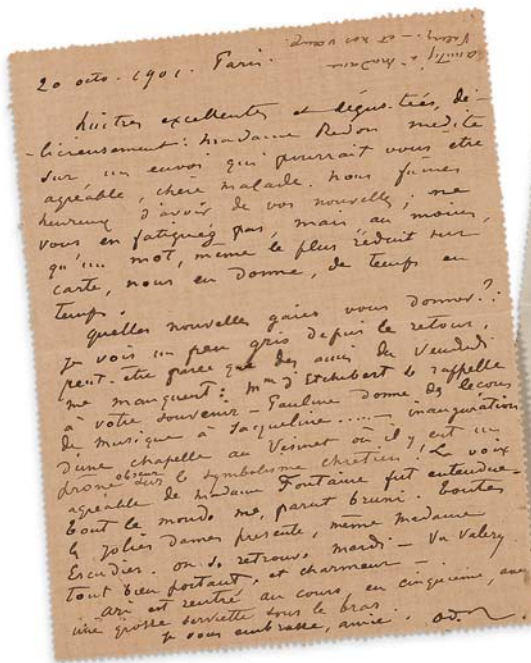 20 octo. 1901. Paris.
amitiés à Madame
Valery. — et nos vœux.
huîtres excellentes et dégustées, dé-
-licieusement : madame Redon médite
sur un envoi qui pourrait vous être
agréable, chère malade. nous fûmes
heureux d'avoir de vos nouvelles ; ne
vous en fatiguez pas, mais au moins,
qu'un mot, même le plus réduit sur
carte, nous en donne, de temps en
temps.
quelles nouvelles gaies vous donner ??
je vois un peu gris depuis le retour,
peut-être parce que des amis du Vendredi
me manquent : Mme d'Etchebert se rappelle
à votre souvenir — Pauline donne des leçons
de musique à Jacqueline ..... — inauguration
d'une chapelle au Vésinet où il y eut un
prône obscur sur le symbolisme chrétien ! La voix
agréable de madame Fontaine fut entendue —
tout le monde me parut bruni. toutes
les jolies dames présente, même madame
Escudier. on se retrouve mardi — Vu Valery
tout bien portant, et charmeur —
ari est rentré au cours, en cinquième, avec
une grosse serviette sous le bras
je vous embrasse, amie.